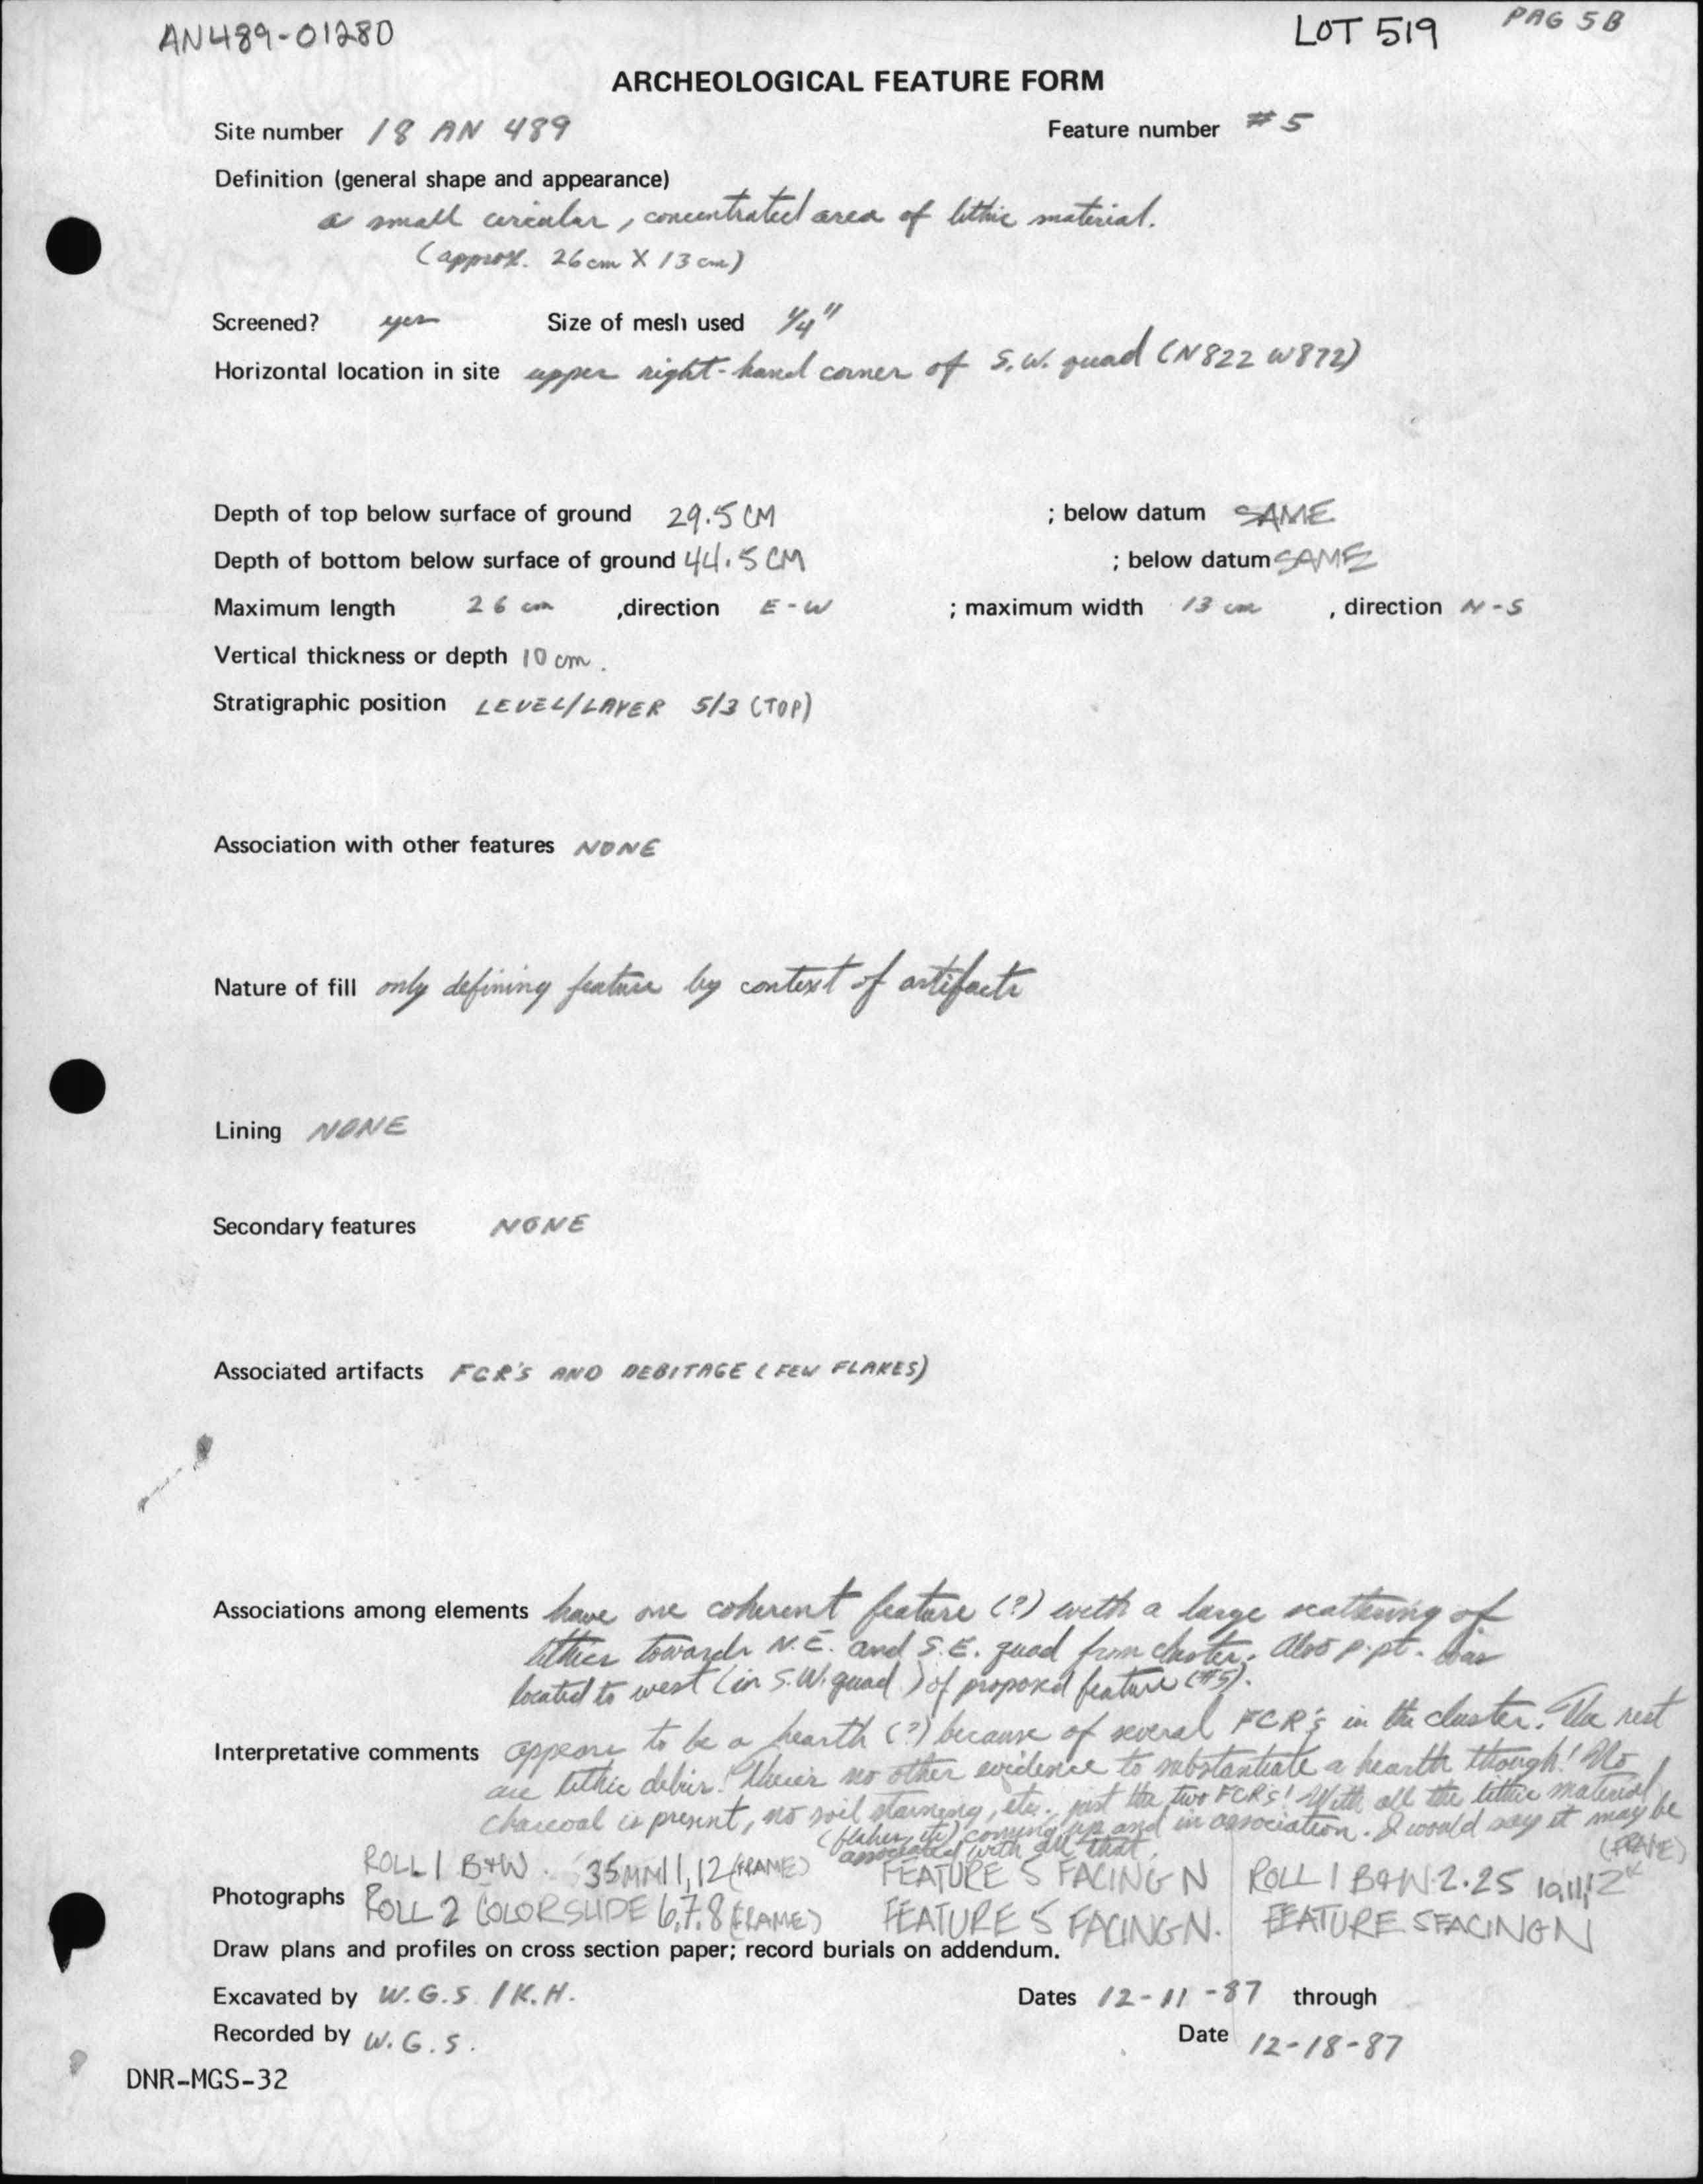 AN489-01280
LOT 519
PAG 5B
ARCHEOLOGICAL FEATURE FORM
Site number 18 AN 489 Feature number #5
Definition (general shape and appearance)
a small circular, concentrated area of lithic material.
(approx. 26 cm X 13 cm)
Screened? yes Size of mesh used 1/4"
Horizontal location in site upper right-hand corner of S.W. quad (N822 W872)
Depth of top below surface of ground 29.5 CM ; below datum SAME
Depth of bottom below surface of ground 44.5 CM ; below datum SAME
Maximum length 26 cm ,direction E-W ; maximum width 13 cm , direction N-S
Vertical thickness or depth 10 cm.
Stratigraphic position LEVEL/LAYER 5/3 (TOP)
Association with other features NONE
Nature of fill only defining feature by context of artifacts
Lining NONE
Secondary features NONE
Associated artifacts FCR'S AND DEBITAGE (FEW FLAKES)
Associations among elements have one coherent feature (?) with a large scattering of
lithics towards N.E. and S.E. quad from cluster. Also p.pt. was
located to west (in S.W. quad) of proposed feature (#5).
Interpretative comments appears to be a hearth (?) because of several FCR's in the cluster. The rest
are lithic debris. There's no other evidence to substantiate a hearth though! No
charcoal is present, no soil staining, etc., just the two FCR's! With all the lithic material
(flakes, etc) coming up and in association. I would say it may be
associated with all that.
ROLL 1 B+W 35MM 11,12 (FRAME) FEATURE 5 FACING N ROLL 1 B&W 2.25 10,11,12 (FRAME)
Photographs ROLL 2 COLOR SLIDE 6,7,8 (FRAME) FEATURE 5 FACING N. FEATURE 5 FACING N
Draw plans and profiles on cross section paper; record burials on addendum.
Excavated by W.G.S. / K.H. Dates 12-11-87 through
Recorded by W.G.S. Date 12-18-87
DNR-MGS-32